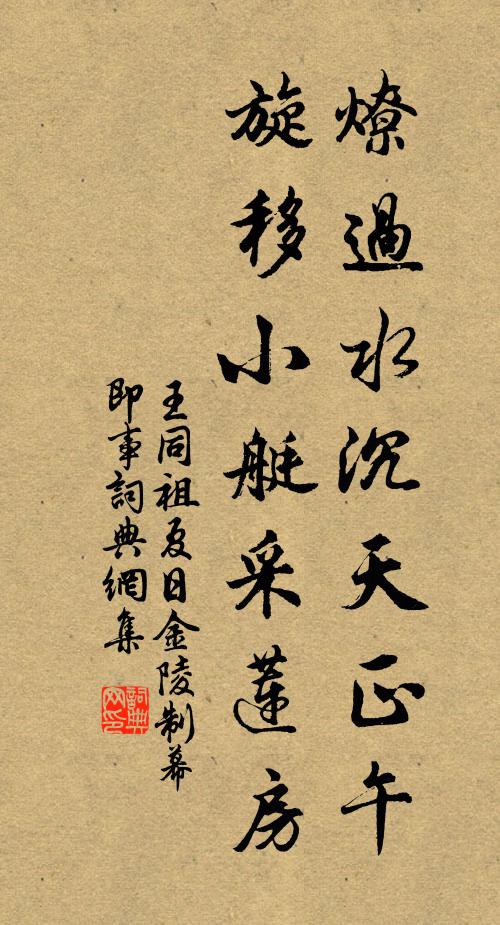 燎過水沉天正午
旋移小艇采蓮房
王同祖夏日金陵制幕
即事詞典網集
詞典
网印